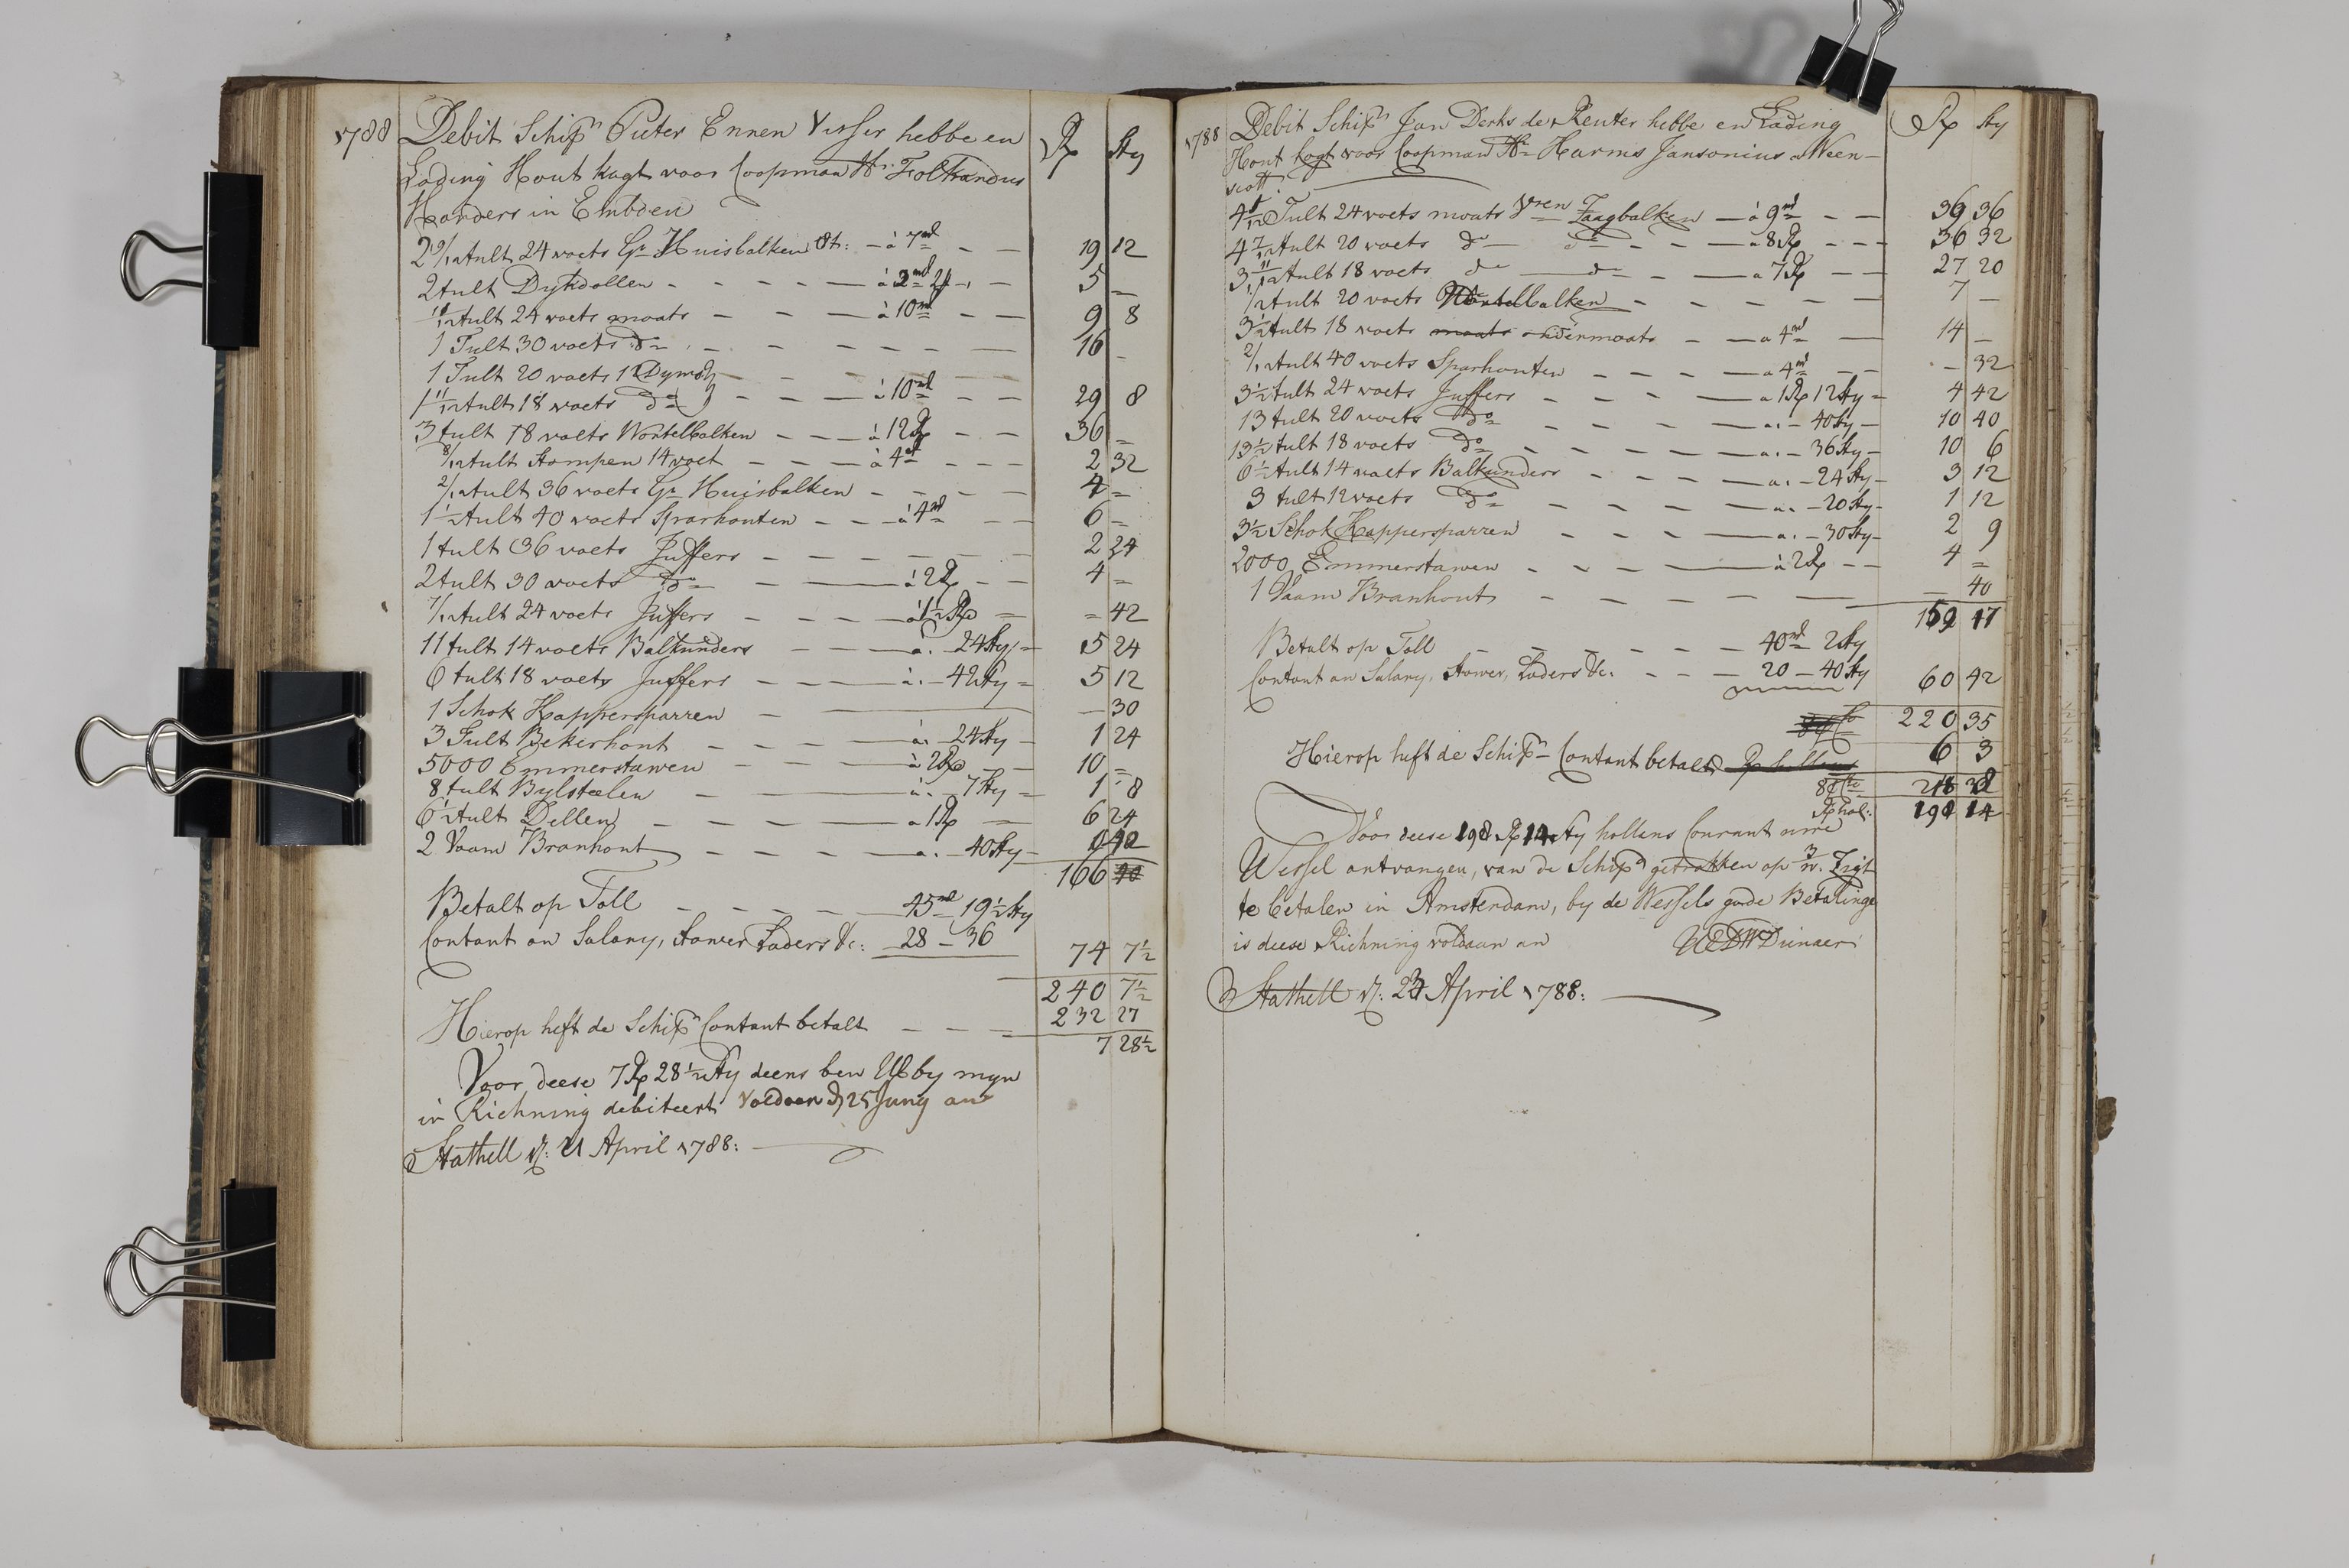 1788 Debit Schipr Pieter Ennen Visser hebbe en Rx Sty
Lading Hout kogt voor Coopman Hr: Folkrandus
Harders in Embden
2 9/12 tult 24 voets Gr Huisbalken St: - à 7rd - - 19 12
2 tult Dykdollen - - - - - à 2rd 24 - 5 -
11/12 tult 24 voets maats - - - à 10rd - - 9 8
1 Tult 30 voets do - - - - - 16 -
1 Tult 20 voets 12 Dyms
1 11/12 tult 18 voets do - - - à 10rd - - 29 8
3 tult 18 voets Wortelbalken - - - à 12 Rx - - 36 =
8/12 tult Stompen 14 voet - - - à 4rd - - - 2 32
2/12 tult 36 voets Gr Huisbalken - - - - 4 =
1 1/2 tult 40 voets Sparhouten - - - à 4rd - - 6 =
1 tult 36 voets Juffers - - - - - 2 24
2 tult 30 voets do - - à 2 Rx - - 4 =
7/12 tult 24 voets Juffers - - - à 1 1/2 Rx = = 42
11 tult 14 voets Balkunders - - - a. - 24 Sty - 5 24
6 tult 18 voets Juffers - - - à. - 42 Sty = 5 12
1 Schok Kappersparren - - 30
3 Tult Bekerhout - - - - à. - 24 Sty - 1 24
5000 Emmerstawen - - - à 2 Rx - - 10 =
8 tult Bylsteelen - - à. - 7 Sty = 1 8
6 1/2 tult Dellen - - - a 1 Rx - 6 24
2 Vaam Branhout - - - - a. - 40 Sty -
166
Betalt op Toll - - - - 45rd 19 1/2 Sty
Contant an Salary, Stower Laders &c: 28 - 36 74 7 1/2
240 7 1/2
Hierop heft de Schipr Contant betalt - - - 232 27
7 28 1/2
Voor deese 7 Rx 28 1/2 Sty deens ben UE by myn
in Richning debiteert Voldaan d 25 Juny an
Stathell d: 21 April 1788:
1788 Debit Schipr Jan Derks de Reuter hebbe en Lading Rx Sty
Hout kogt voor Coopman Hr Harms Jansonius Ween-
scott.
Tult 24 voets maats Vren Zaagbalken - à 9rd - - 39 36
4 7/12 tult 20 voets do do - - - a 8 Rx - - - 36 32
3 11/12 tult 18 voets do do - - a 7 Rx - - 27 20
1/2 tult 20 voets Wortelbalken - - - - - 7 -
3 1/2 tult 18 voets maats undermaats - - a 4rd - 14 -
2/12 tult 40 voets Sparhouten - - - a 4rd - - - 32
3 1/2 tult 24 voets Juffers - - - - a 1 Rx 12 Sty = 4 42
13 tult 20 voets do - - - - a. - 40 Sty - 10 40
13 1/2 tult 18 voets do - - - - a. - 36 Sty - 10 6
6 1/2 tult 14 voets Balkunders - - - a. - 24 Sty - 3 12
3 tult 12 voets do - - - - a. - 20 Sty - 1 12
3 1/2 Schok Kappersparren - - - a. - 30 Sty - 2 9
2000 Emmerstawen - - - - à 2 Rx - - 4 =
1 Vaam Branhout - - - - - 40
159 47
Betalt op Toll - - - - - 40rd 2 Sty
Contant an Salary, Stower, Laders &c. - - - 20 - 40 Sty 60 42
220 35
Hierop heft de Schipr Contant betalt 6 3
Rx hol: 198 14
Voor deese 198 Rx 14 Sty hollens Courant
Wessel ontvangen, van de Schipr getrokken op 3 w. Zigt
te betalen in Amsterdam, by de Wessels goode Betalinge
is deese Richning voldaan an UEDW Dienaer
Stathell d: 23 April 1788: